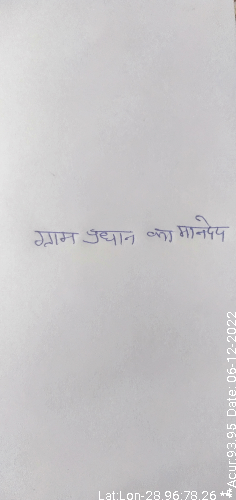 ग्राम प्रधान का मानदेय
Lat:Lon-28.96:78.26 **
*Acur:93.95 Date: 06-12-2022